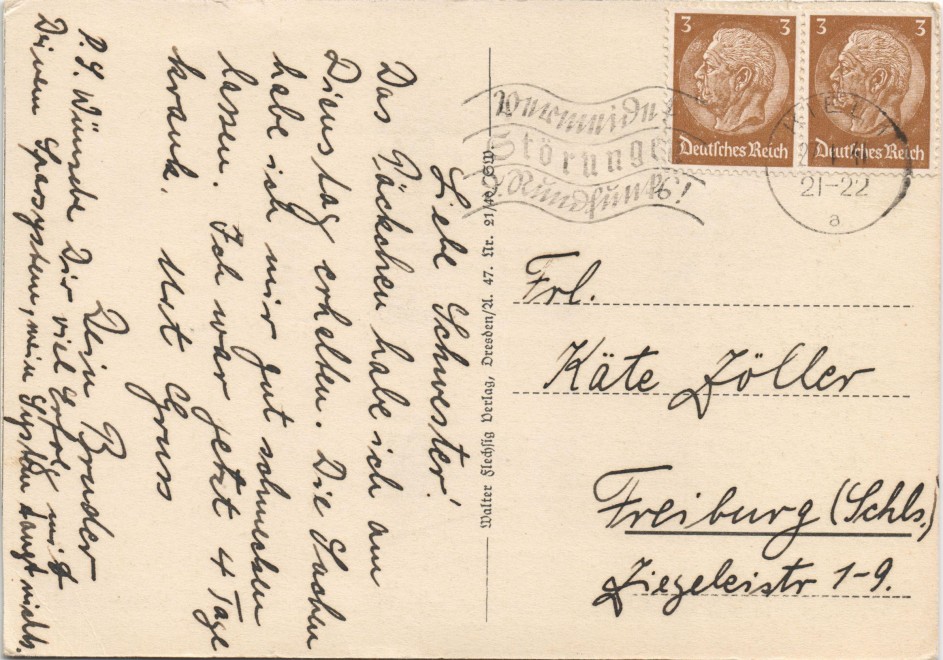 Liebe Schwester!
Das Päckchen habe ich am
Dienstag erhalten. Die Sachen
habe ich mir gut schmecken
lassen. Ich war jetzt 4 Tage
krank. Mit Gruss
Dein Bruder
P.S. Wünsche Dir viel Erfolg mit
Deinem Sparsystem, mein System taugt nichts.
Walter Flechsig Verlag, Dresden/A. 47. Nr. 21/40/SW
3 3
Deutsches Reich
3 3
Deutsches Reich
Vermeide
Störunge
Rundfunks!
21-22
a
Frl.
Käte Zöller
Freiburg (Schls.)
Ziegeleistr 1-9.